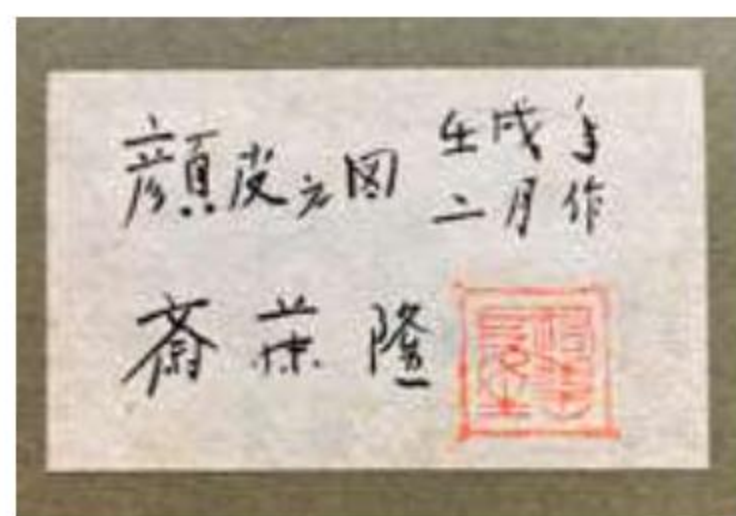 顔皮之図 壬戌年
二月作
斎藤隆